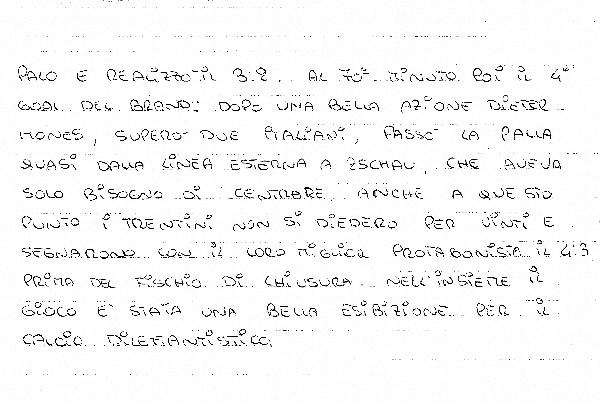 PALO E REALIZZÒ IL 3:2. AL 70° MINUTO POI IL 4°
GOAL DEL BRAND: DOPO UNA BELLA AZIONE DIETER
MONES, SUPERÒ DUE ITALIANI, PASSÒ LA PALLA
QUASI DALLA LINEA ESTERNA A ZSCHAU, CHE AVEVA
SOLO BISOGNO DI CENTRARE. ANCHE A QUESTO
PUNTO I TRENTINI NON SI DIEDERO PER VINTI E
SEGNARONO CON IL LORO MIGLIOR PROTAGONISTA IL 4:3
PRIMA DEL FISCHIO DI CHIUSURA. NELL'INSIEME IL
GIOCO E' STATA UNA BELLA ESIBIZIONE PER IL
CALCIO DILETTANTISTICO.